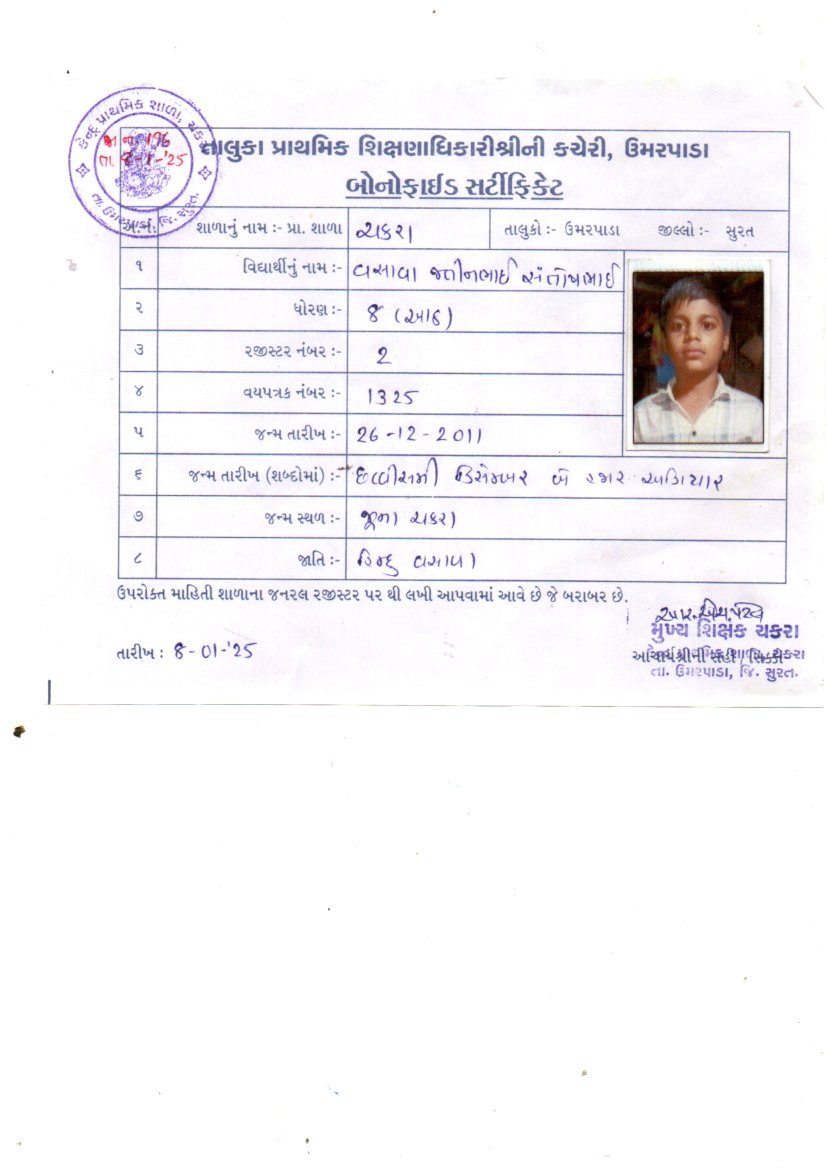 કેન્દ્ર પ્રાથમિક શાળા, ચકરા
જા નં 196
તા 8-1-'25
તા. ઉમરપાડા, જિ. સુરત.
તાલુકા પ્રાથમિક શિક્ષણાધિકારીશ્રીની કચેરી, ઉમરપાડા
બોનોફાઈડ સર્ટીફિકેટ
અ.નં. શાળાનું નામ :- પ્રા. શાળા ચકરા તાલુકો :- ઉમરપાડા જીલ્લો :- સુરત
૧ વિદ્યાર્થીનું નામ :- વસાવા જતીનભાઈ સંતોષભાઈ
૨ ધોરણ :- 8 (આઠ)
૩ રજીસ્ટર નંબર :- 2
૪ વયપત્રક નંબર :- 1325
૫ જન્મ તારીખ :- 26-12-2011
૬ જન્મ તારીખ (શબ્દોમાં) :- છવ્વીસમી ડિસેમ્બર બે હજાર અગિયાર
૭ જન્મ સ્થળ :- જૂના ચકરા
૮ જાતિ :- હિન્દુ વસાવા
ઉપરોક્ત માહિતી શાળાના જનરલ રજીસ્ટર પર થી લખી આપવામાં આવે છે જે બરાબર છે.
મુખ્ય શિક્ષક ચકરા
તારીખ : 8-01-'25
આચાર્યશ્રીની સહી / સિક્કો
તા. ઉમરપાડા, જિ. સુરત.